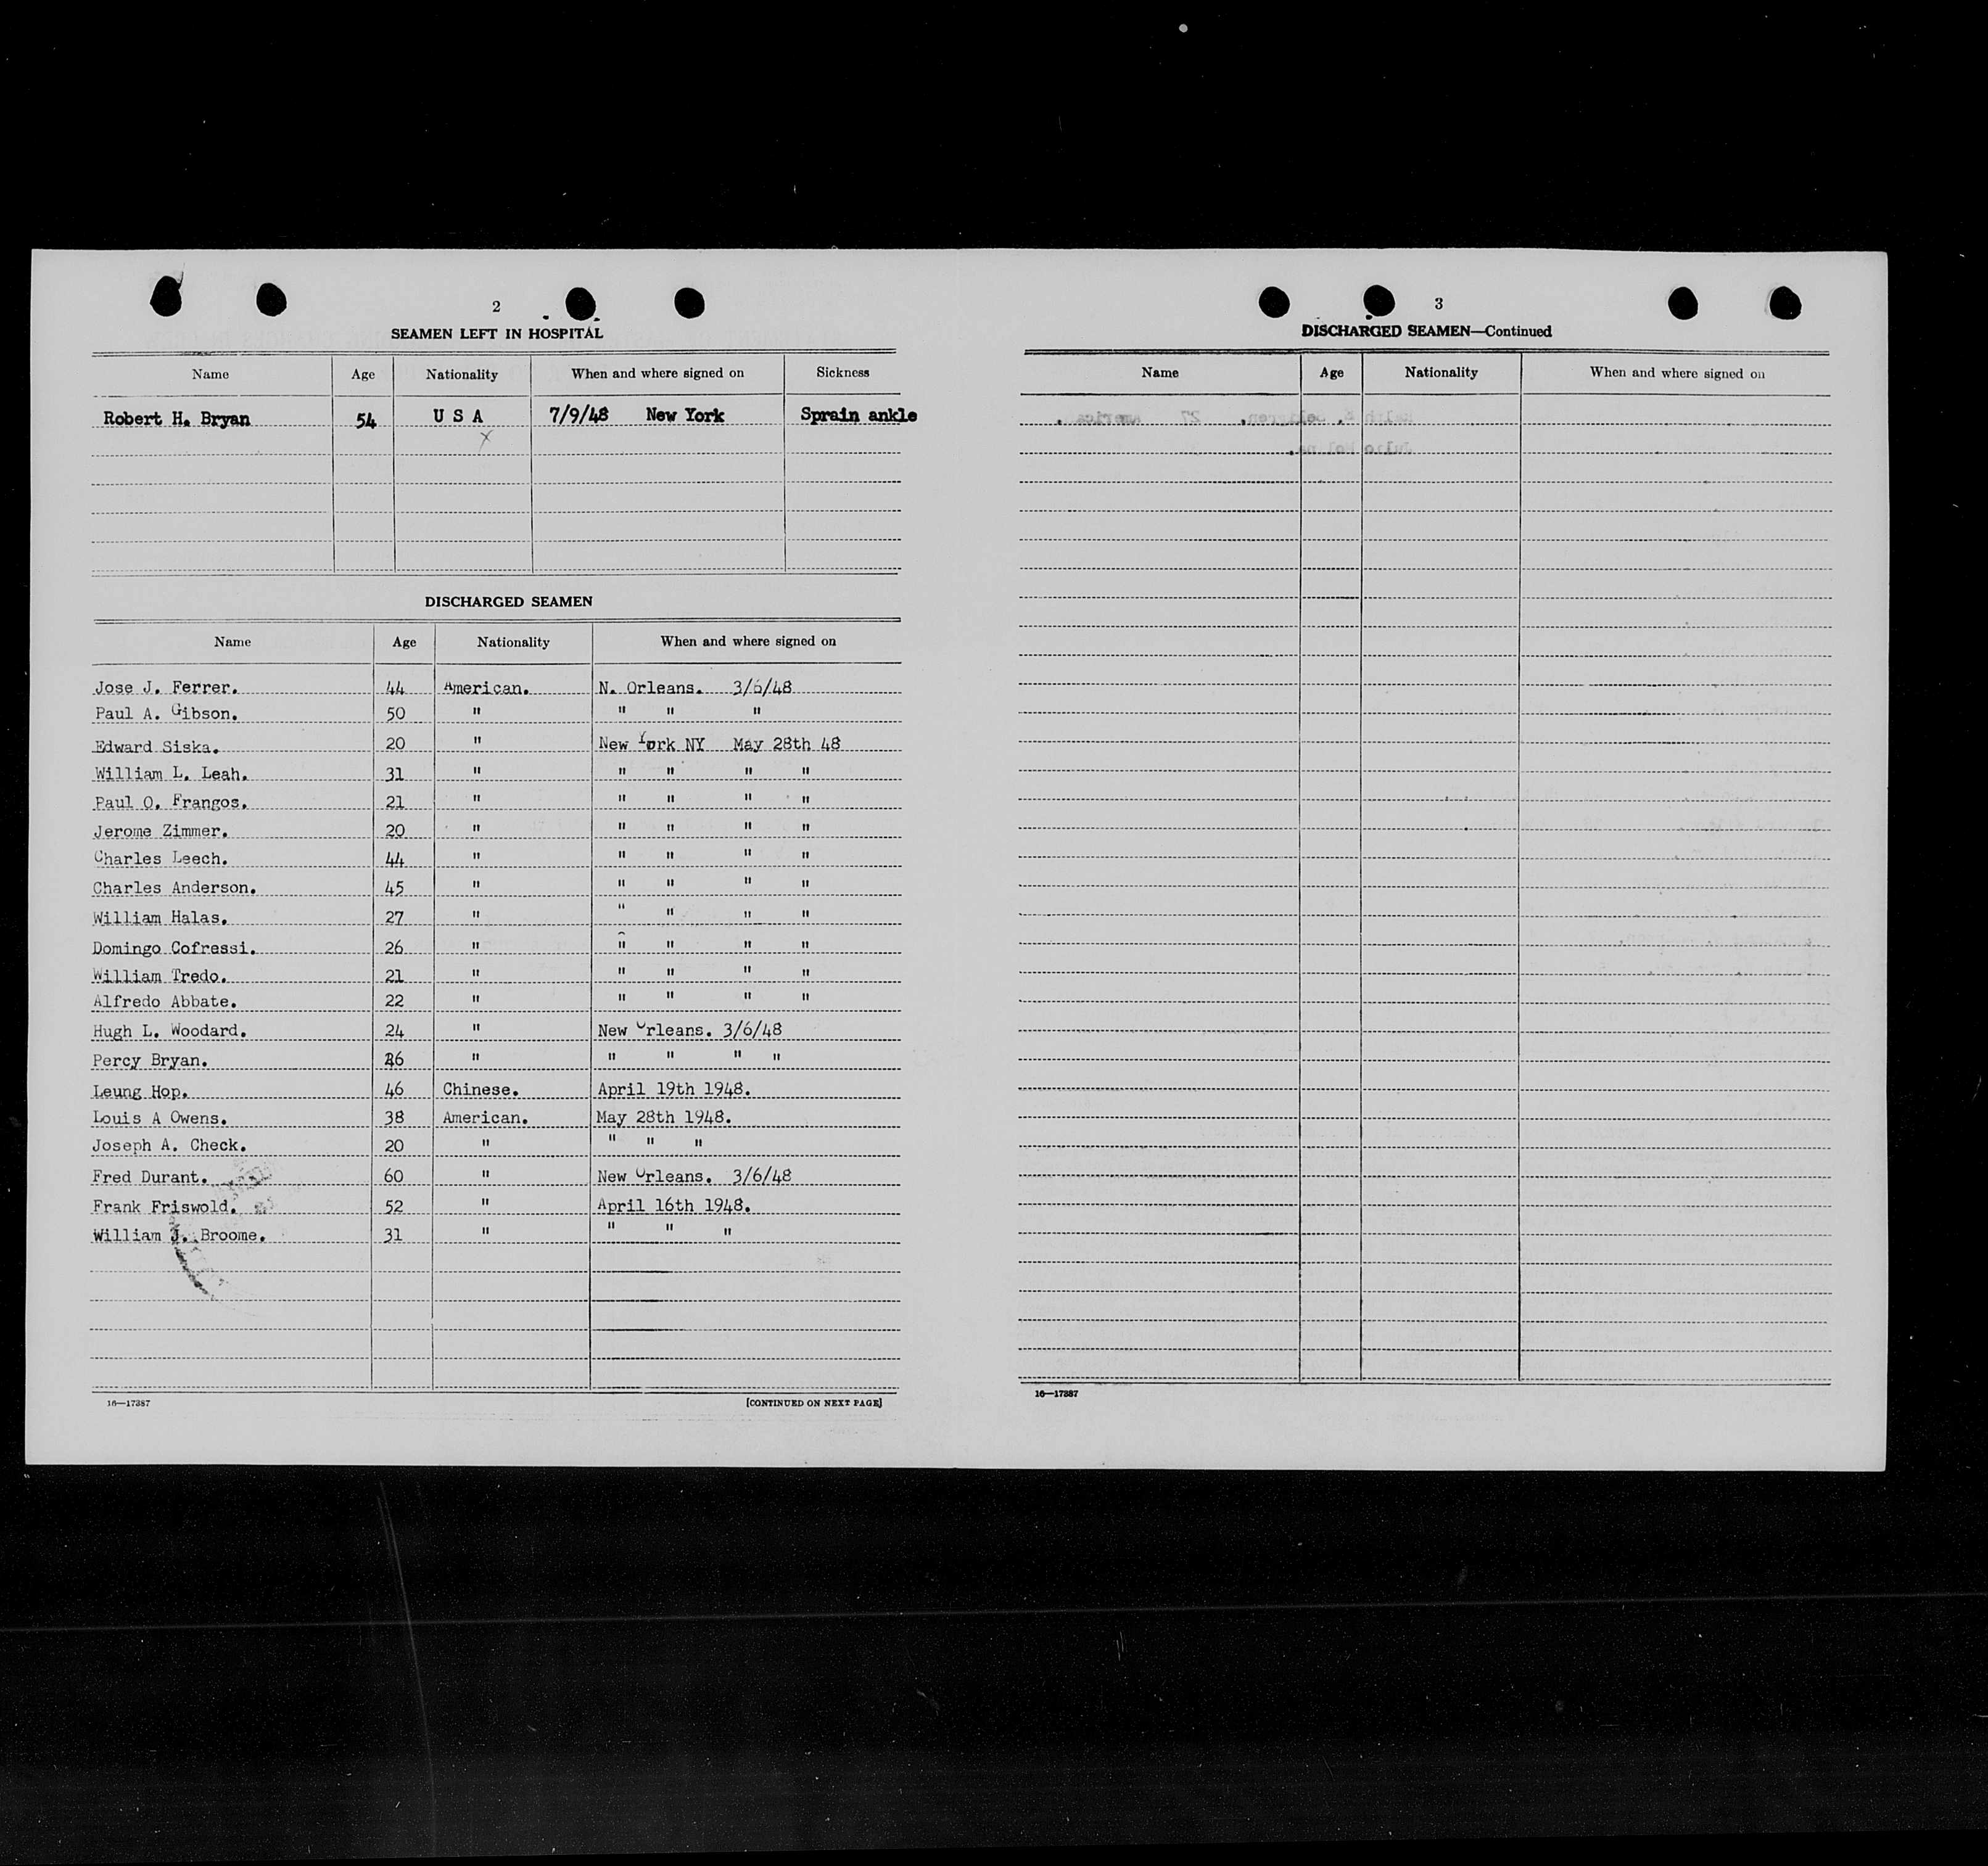 2
SEAMEN LEFT IN HOSPITAL
Name Age Nationality When and where signed on Sickness
Robert H. Bryan 54 U S A 7/9/48 New York Sprain ankle
DISCHARGED SEAMEN
Name Age Nationality When and where signed on
Jose J. Ferrer. 44 American. N. Orleans. 3/6/48
Paul A. Gibson. 50 " " " "
Edward Siska. 20 " New York NY May 28th 48
William L. Leah. 31 " " " " "
Paul O. Frangos. 21 " " " " "
Jerome Zimmer. 20 " " " " "
Charles Leech. 44 " " " " "
Charles Anderson. 45 " " " " "
William Halas. 27 " " " " "
Domingo Cofressi. 26 " " " " "
William Tredo. 21 " " " " "
Alfredo Abbate. 22 " " " " "
Hugh L. Woodard. 24 " New Orleans. 3/6/48
Percy Bryan. 26 " " " " "
Leung Hop. 46 Chinese. April 19th 1948.
Louis A Owens. 38 American. May 28th 1948.
Joseph A. Check. 20 " " " "
Fred Durant. 60 " New Orleans. 3/6/48
Frank Friswold. 52 " April 16th 1948.
William J. Broome. 31 " " " "
16—17387 [CONTINUED ON NEXT PAGE]
3
DISCHARGED SEAMEN—Continued
Name Age Nationality When and where signed on
16—17387